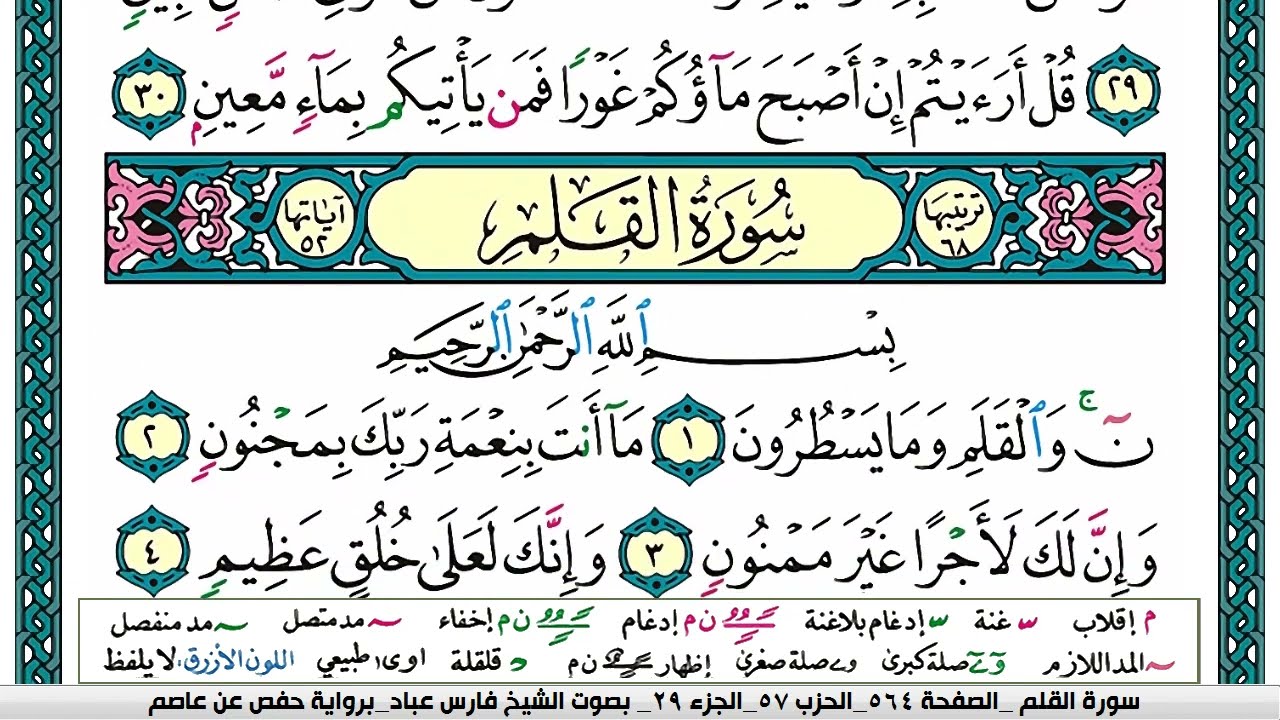 ٢٩ قُلْ أَرَءَيْتُمْ إِنْ أَصْبَحَ مَآؤُكُمْ غَوْرًا فَمَن يَأْتِيكُم بِمَآءٍ مَّعِينٍۭ ٣٠
ترتيبها ٦٨ سُورَةُ الْقَلَمِ آياتها ٥٢
بِسْمِ ٱللَّهِ ٱلرَّحْمَٰنِ ٱلرَّحِيمِ
نٓ ۚ وَٱلْقَلَمِ وَمَا يَسْطُرُونَ ١ مَآ أَنتَ بِنِعْمَةِ رَبِّكَ بِمَجْنُونٍ ٢
وَإِنَّ لَكَ لَأَجْرًا غَيْرَ مَمْنُونٍ ٣ وَإِنَّكَ لَعَلَىٰ خُلُقٍ عَظِيمٍ ٤
م إقلاب غنة إدغام بلاغنة ن م إدغام ن م إخفاء مد متصل مد منفصل
المد اللازم صلة كبرى صلة صغرى إظهار ن م قلقلة اوى طبيعي اللون الأزرق: لا يلفظ
سورة القلم _الصفحة ٥٦٤_الحزب ٥٧_الجزء ٢٩_ بصوت الشيخ فارس عباد_برواية حفص عن عاصم